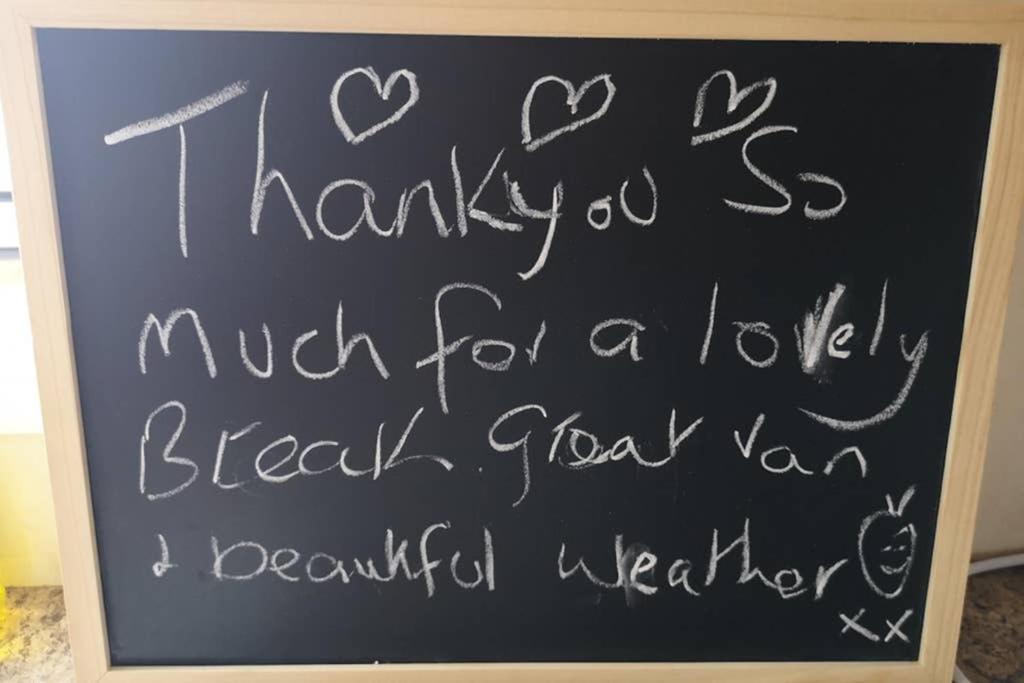 Thankyou So
much for a lovely
Break. Great van
& beautiful weather
xx